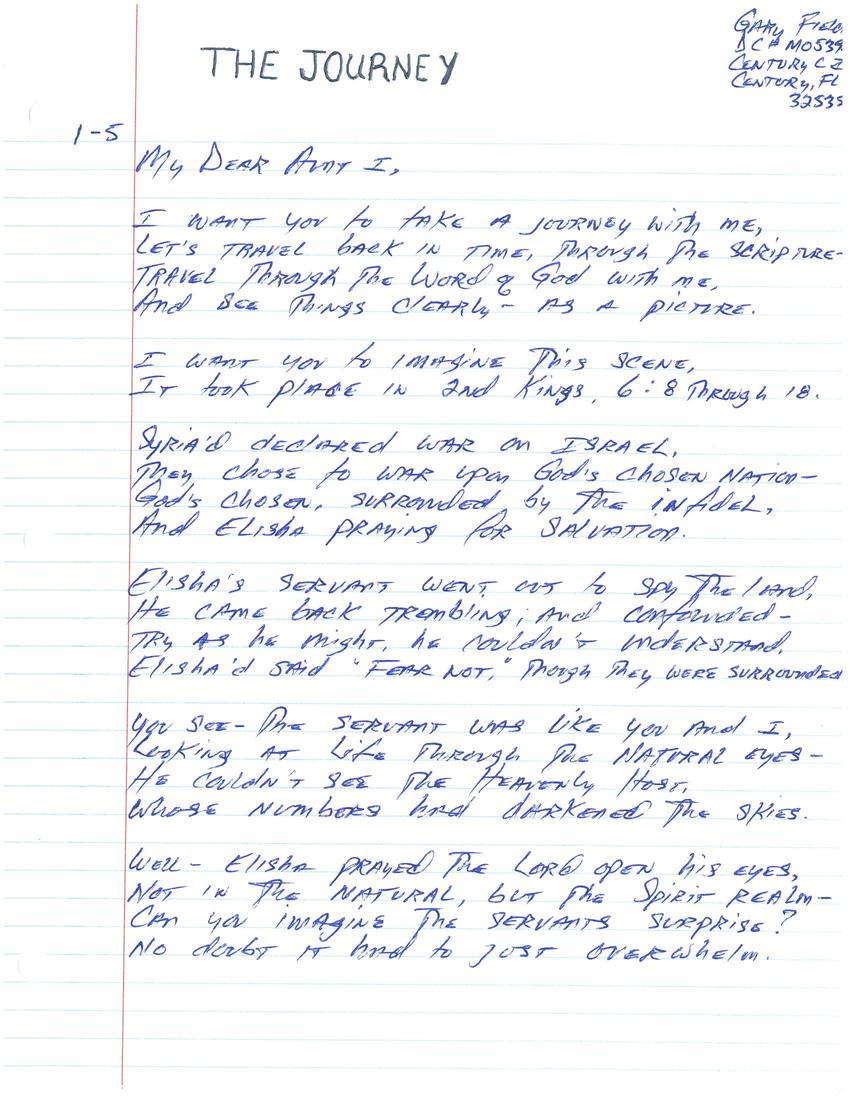 THE JOURNEY
Gary Field
DC# M0539
Century C I
Century, FL
32535
1-5
My Dear Aunt I,
I want you to take a journey with me,
Let's travel back in time, through the scripture-
Travel through the Word of God with me,
And see things clearly- as a picture.
I want you to imagine this scene,
It took place in 2nd Kings, 6:8 through 18.
Syria'd declared war on Israel,
They chose to war upon God's chosen nation-
God's chosen, surrounded by the infidel,
And Elisha praying for salvation.
Elisha's servant went out to spy the land,
He came back trembling; and confounded-
Try as he might, he couldn't understand,
Elisha'd said "Fear not," though they were surrounded
You see- the servant was like you and I,
Looking at life through the natural eyes-
He couldn't see the Heavenly Host,
Whose numbers had darkened the skies.
Well- Elisha prayed the Lord open his eyes,
Not in the natural, but the Spirit realm-
Can you imagine the servants surprise?
No doubt it had to just overwhelm.